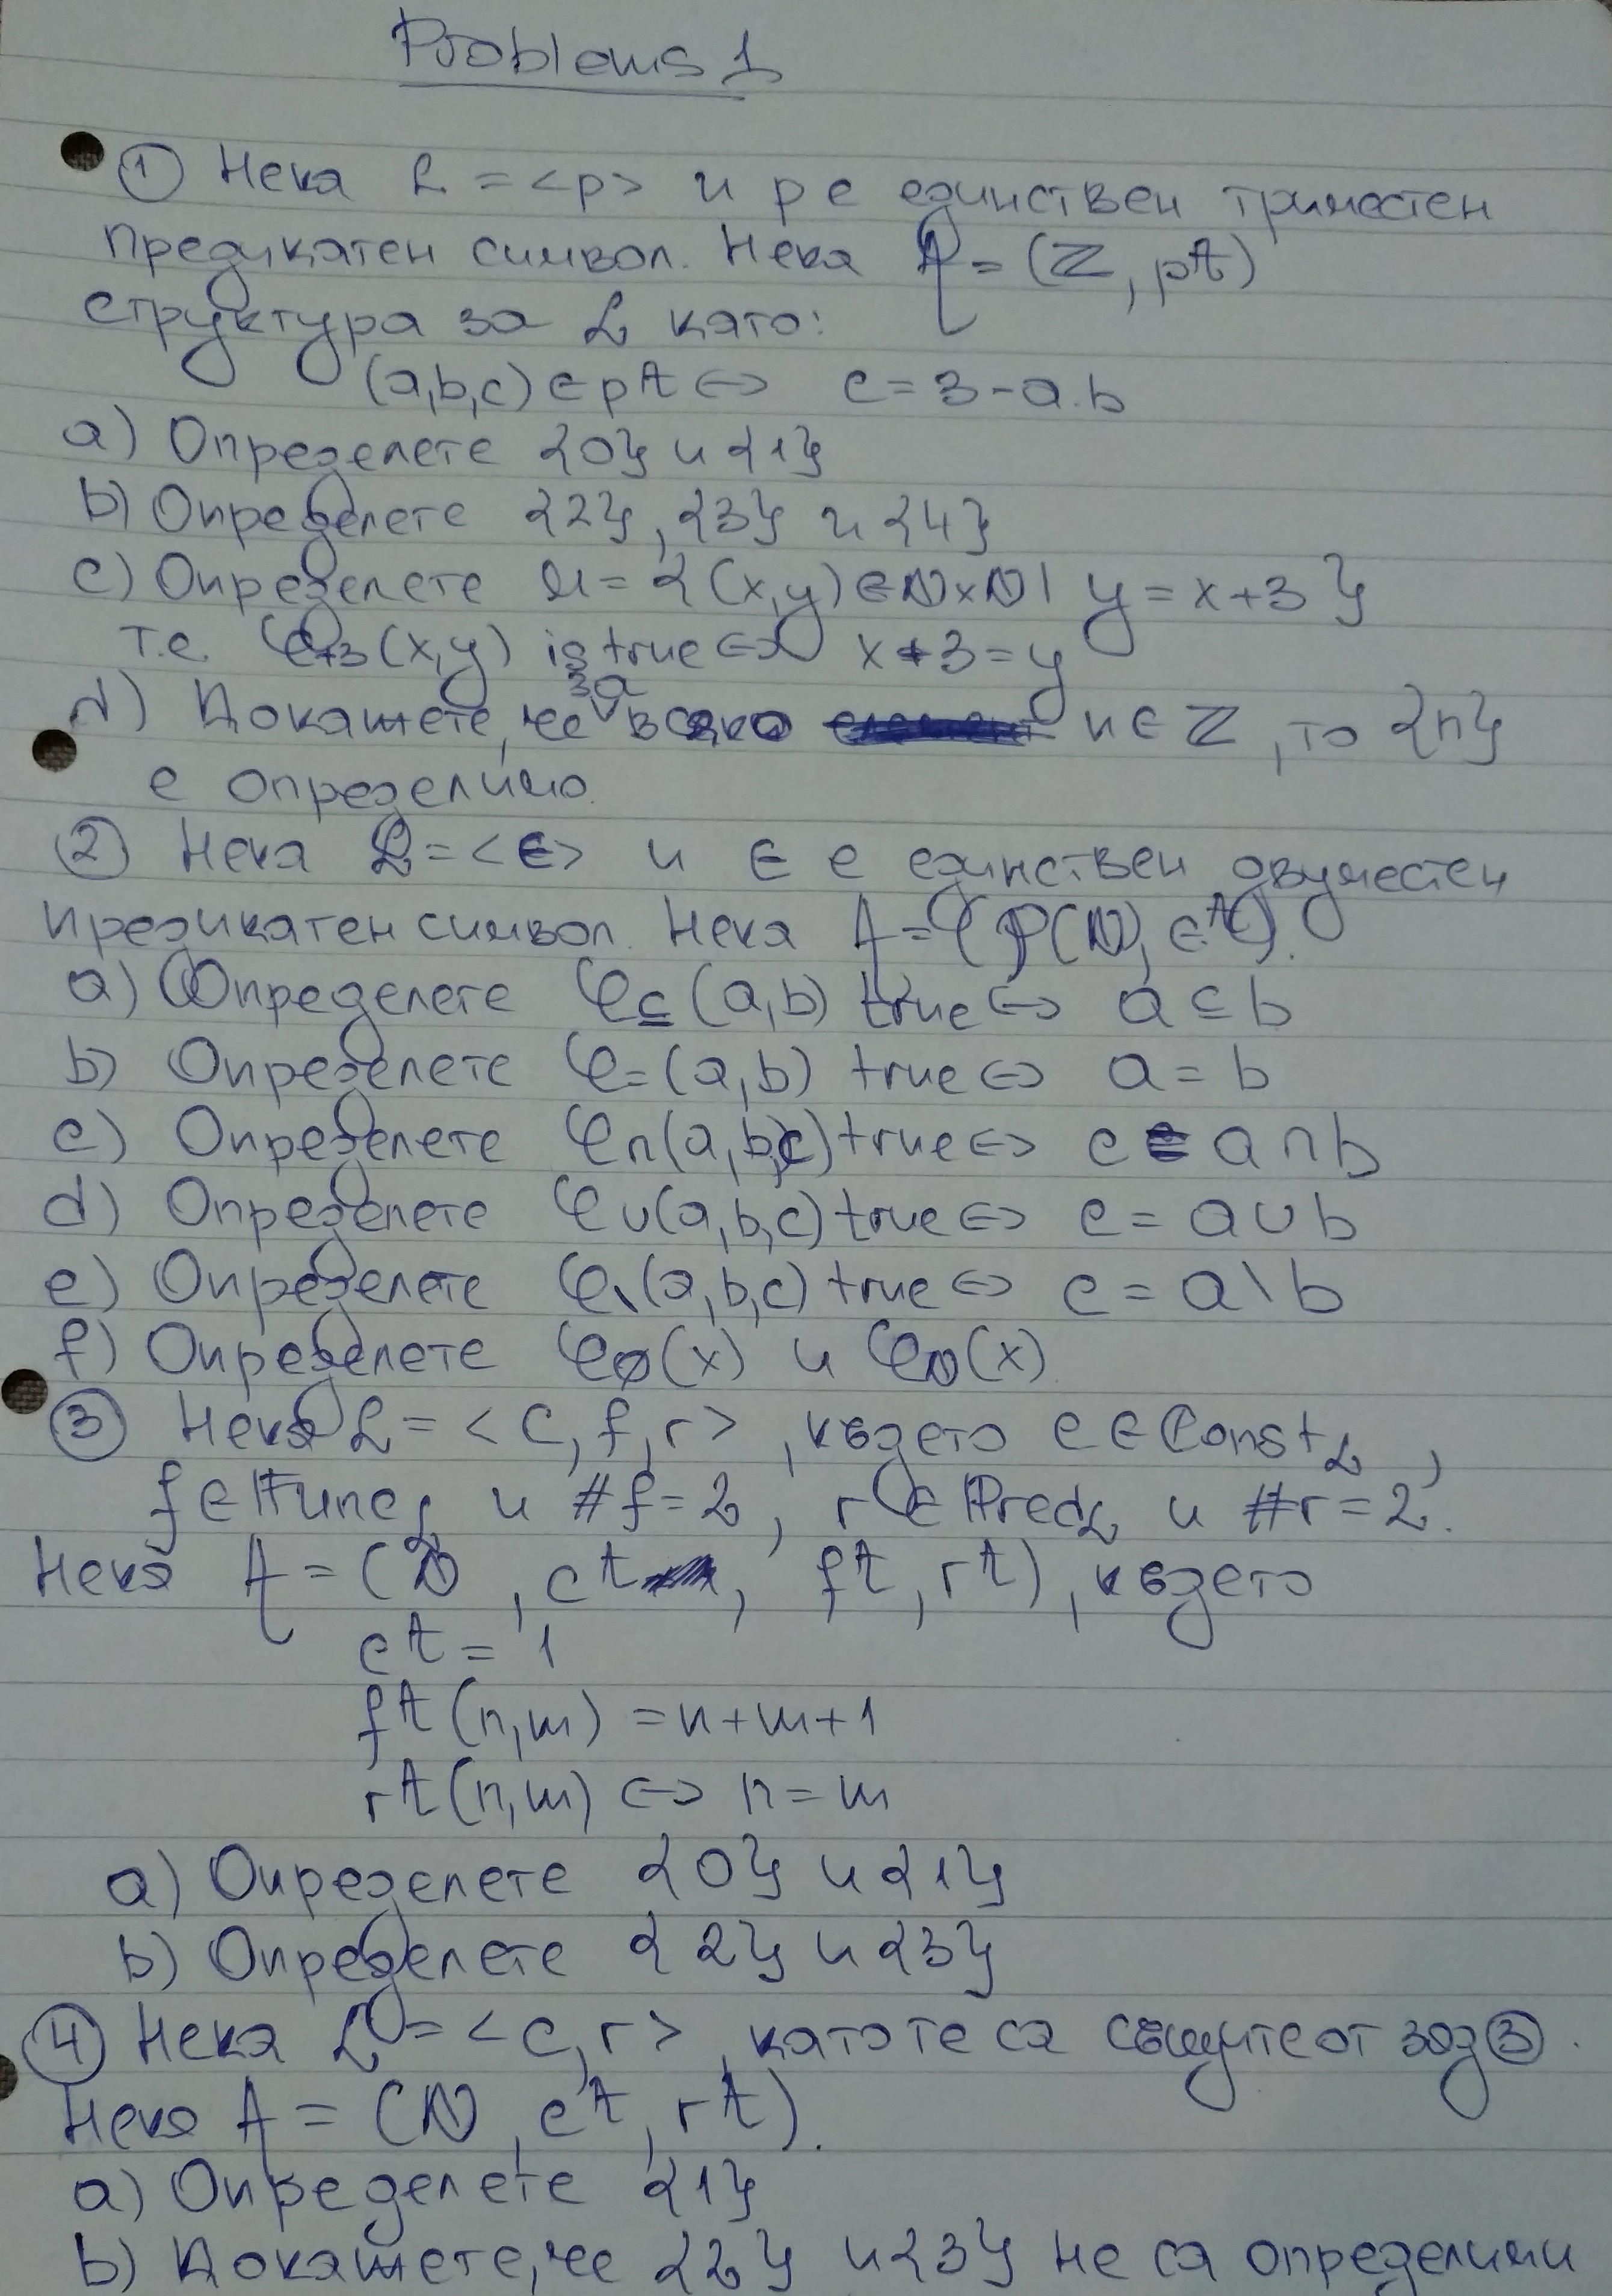 Problems 1
① Нека L = <p> и p е единствен триместен
предикатен символ. Нека A = (ℤ, pᴬ)
структура за L като:
(a,b,c) ∈ pᴬ ⇔ c = 3 - a.b
a) Определете {0} и {1}
b) Определете {2}, {3} и {4}
c) Определете M = {(x,y) ∈ ℕ×ℕ | y = x+3}
т.е. φ₊₃(x,y) is true ⇔ x+3=y
d) Докажете, че за всяко n ∈ ℤ, то {n}
е определимо.
② Нека L = <∈> и ∈ е единствен двуместен
предикатен символ. Нека A = (P(ℕ), ∈ᴬ).
a) Определете φ⊆(a,b) true ⇔ a ⊆ b
b) Определете φ=(a,b) true ⇔ a = b
c) Определете φ∩(a,b,c) true ⇔ c = a ∩ b
d) Определете φ∪(a,b,c) true ⇔ c = a ∪ b
e) Определете φ\(a,b,c) true ⇔ c = a \ b
f) Определете φ∅(x) и φℕ(x)
③ Нека L = <c, f, r>, където c ∈ Const_L,
f ∈ Func_L и #f=2, r ∈ Pred_L и #r=2.
Нека A = (ℕ, cᴬ, fᴬ, rᴬ), където
cᴬ = 1
fᴬ(n,m) = n+m+1
rᴬ(n,m) ⇔ n = m
a) Определете {0} и {1}
b) Определете {2} и {3}
④ Нека L = <c, r>, като те са същите от зад ③.
Нека A = (ℕ, cᴬ, rᴬ).
a) Определете {1}
b) Докажете, че {2} и {3} не са определими